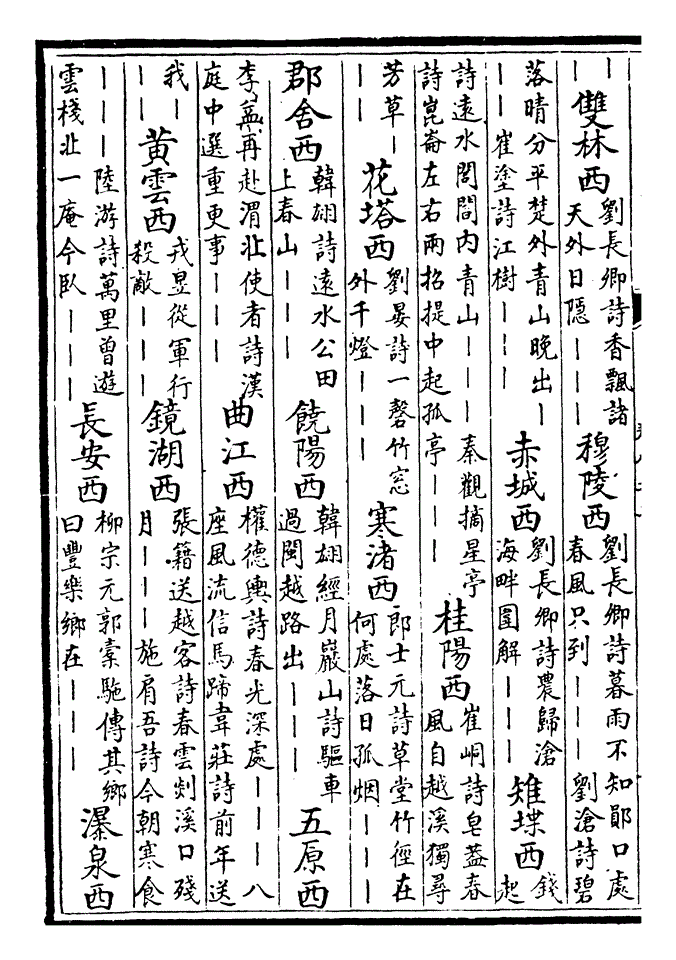 ｜
｜雙林西劉長卿詩香飄諸
天外日隱｜｜｜穆陵西劉長卿詩暮雨不知鄖口處
春風只到｜｜｜劉滄詩碧
落晴分平楚外青山晚出｜
｜｜崔塗詩江樹｜｜｜赤城西劉長卿詩農歸滄
海畔圍解｜｜｜雉堞西錢
起
詩遠水閭閻內青山｜｜｜秦觀摘星亭
詩崑崙左右兩招提中起孤亭｜｜｜桂陽西崔峒詩皂蓋春
風自越溪獨尋
芳草｜
｜｜花塔西劉晏詩一磬竹窓
外千燈｜｜｜寒渚西郎士元詩草堂竹徑在
何處落日孤烟｜｜｜
郡舍西韓翃詩遠水公田
上春山｜｜｜饒陽西韓翃經月巖山詩驅車
過閩越路出｜｜｜五原西
李益再赴渭北使者詩漢
庭中選重更事｜｜｜曲江西權德輿詩春光深處｜｜｜八
座風流信馬蹄韋莊詩前年送
我｜
｜｜黃雲西戎昱從軍行
殺敵｜｜｜鏡湖西張籍送越客詩春雲剡溪口殘
月｜｜｜施肩吾詩今朝寒食
｜｜｜陸游詩萬里曾遊
雲棧北一庵今臥｜｜｜長安西柳宗元郭橐駞傳其鄉
曰豐樂鄉在｜｜｜瀑泉西